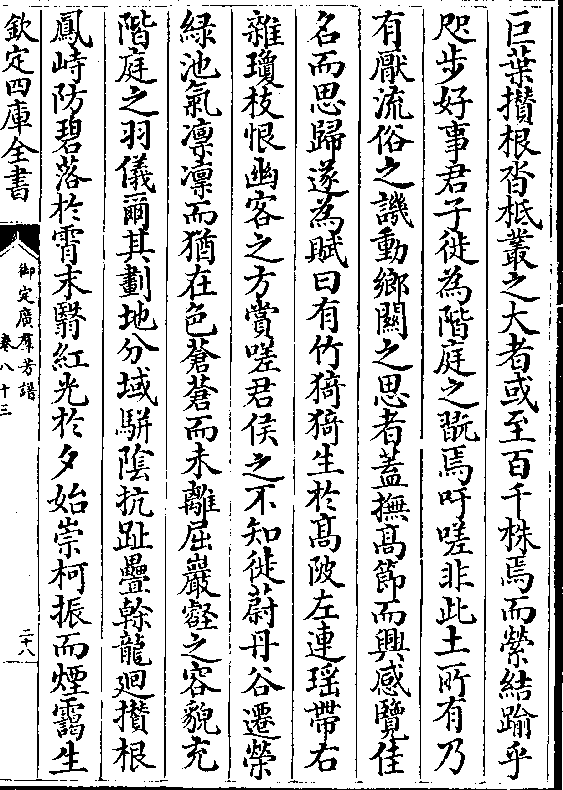 巨葉攢根沓柢叢之大者或至百千株焉而縈結踰乎
咫步好事君子徙為階庭之翫焉吁嗟非此土所有乃
有厭流俗之譏動鄉關之思者蓋撫高節而興感覽佳
名而思歸遂為賦曰有竹猗猗生於高陂左連瑶帶右
雜瓊枝恨幽客之方賞嗟君侯之不知徙蔚丹谷遷榮
緑池氣凛凛而猶在色蒼蒼而未離屈巖壑之容貌充
階庭之羽儀爾其劃地分域駢陰抗趾疊幹龍廻攢根
鳳峙防碧落於霄末翳紅光於夕始崇柯振而煙靄生
欽定四庫全書
御定廣羣芳譜
卷八十三
二十八